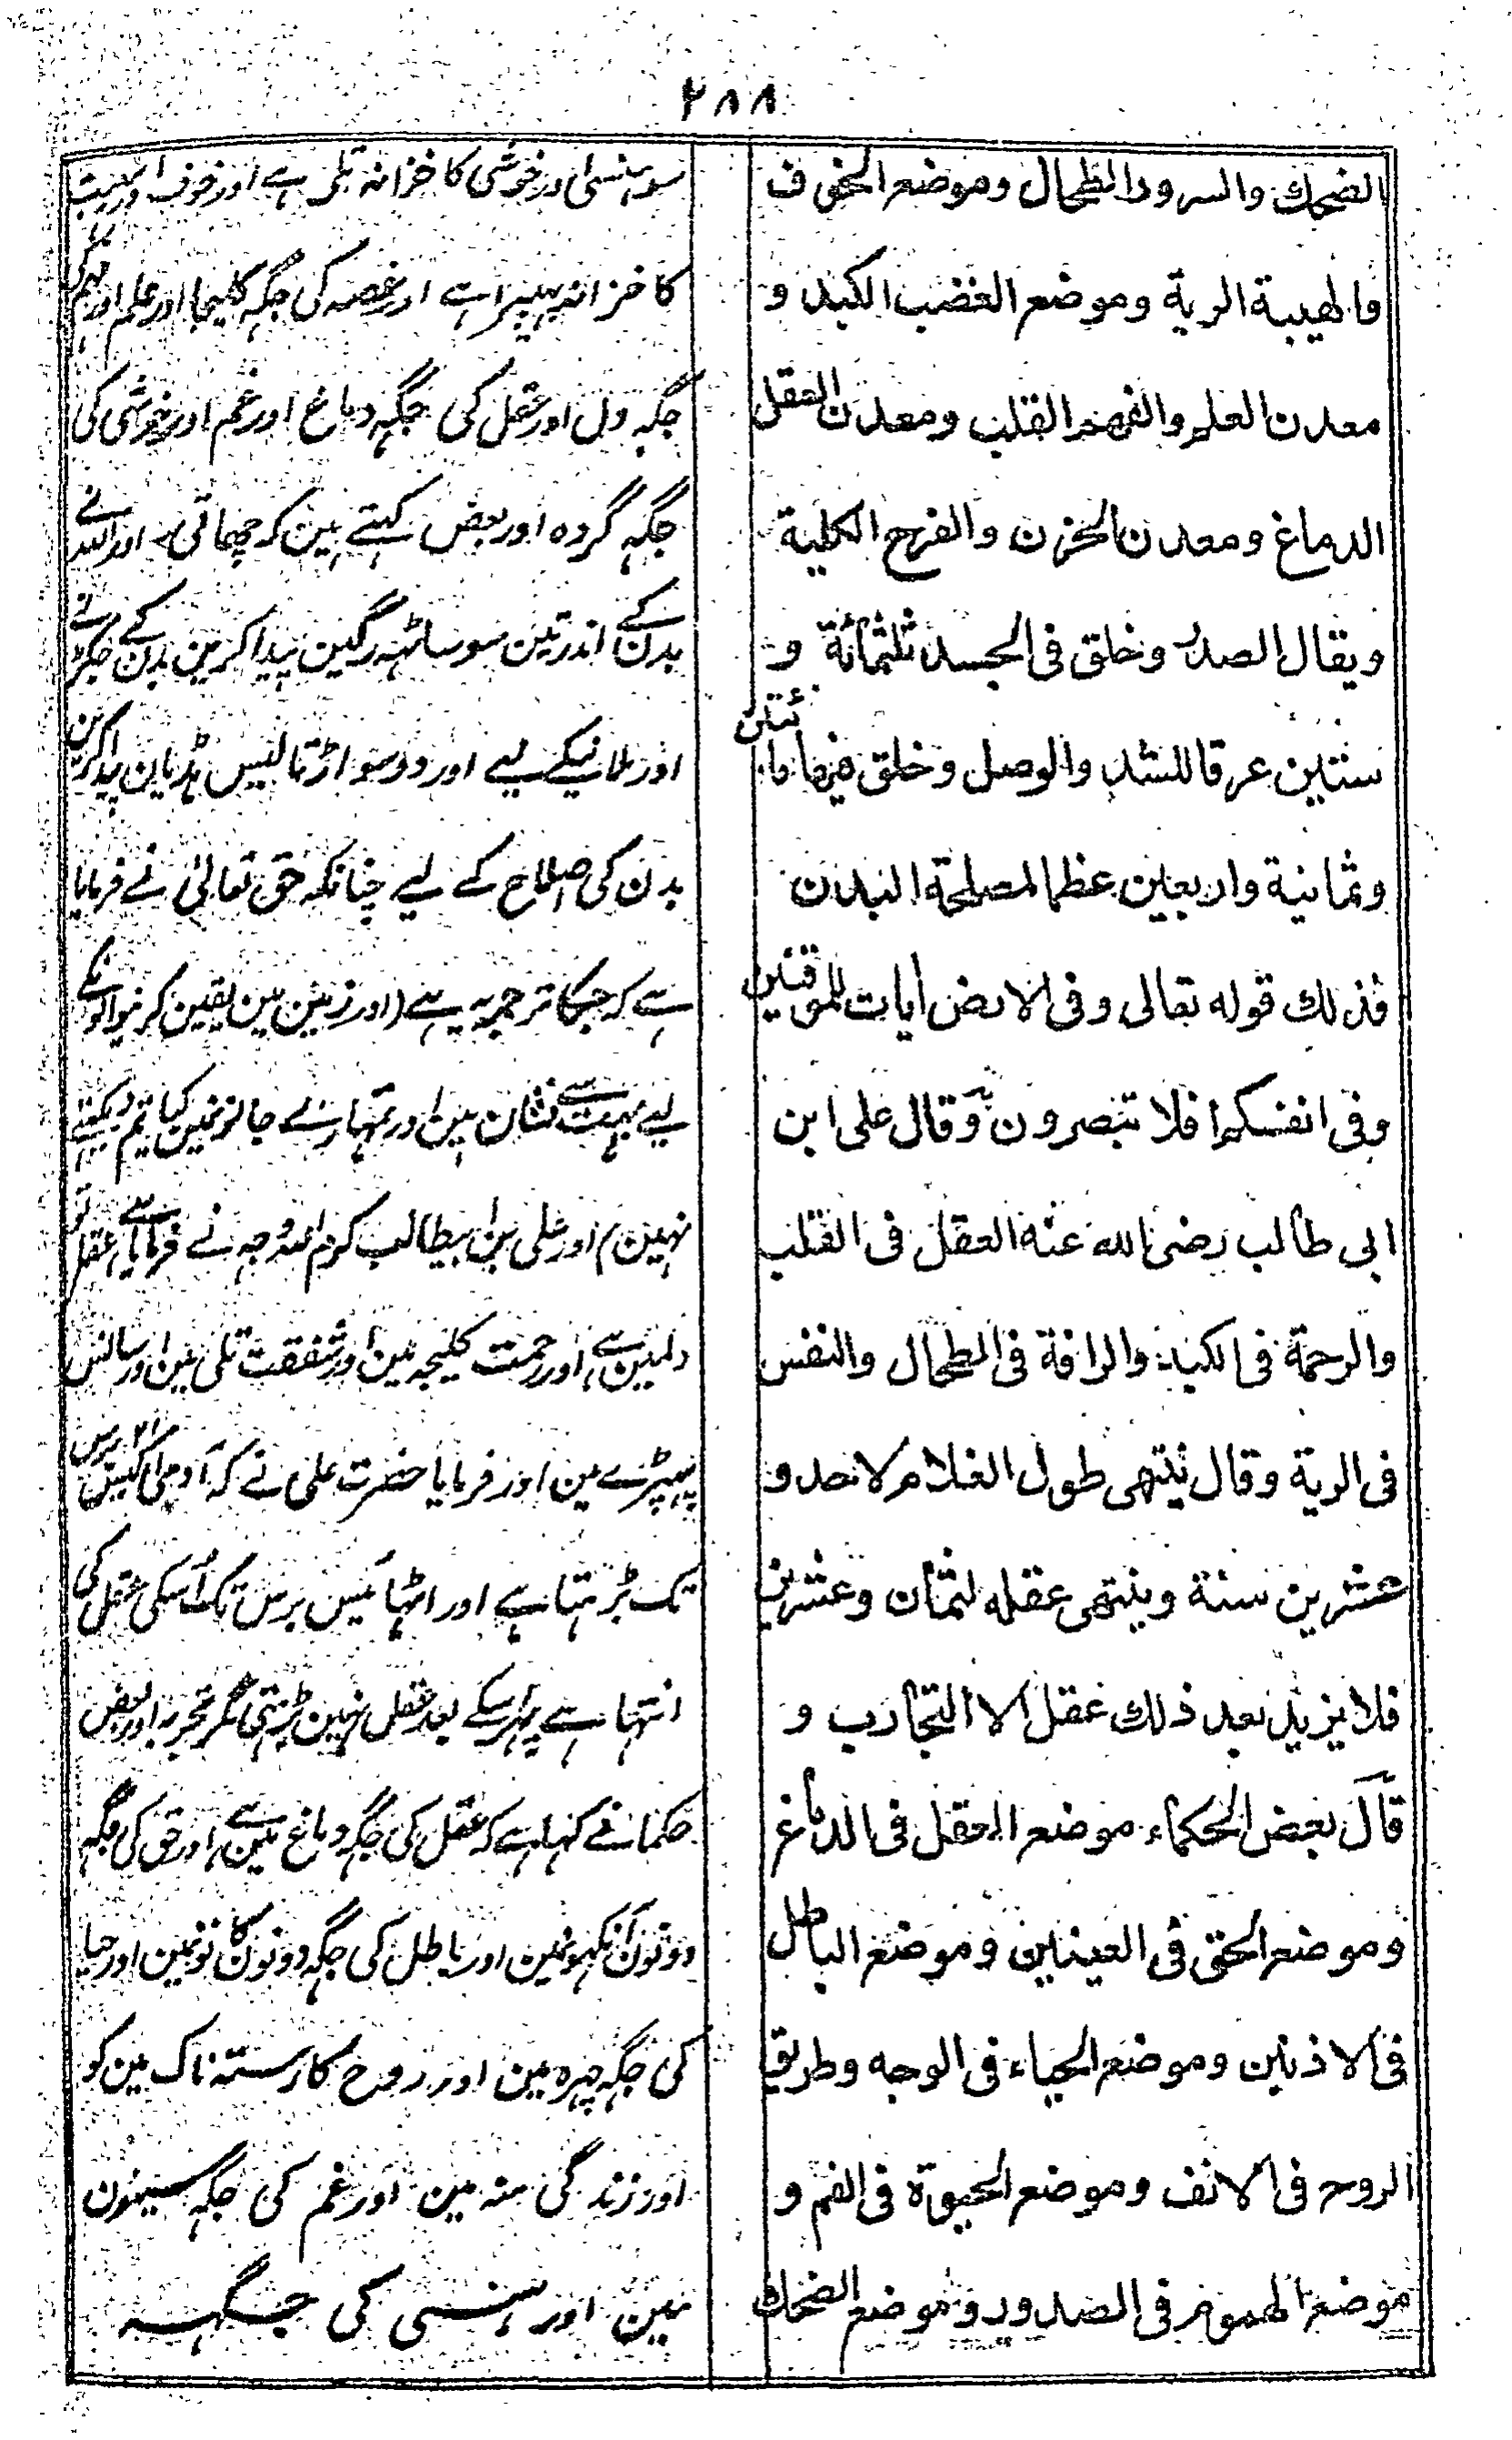 ۲۸۸
الضحك والسرور الطحال وموضع الخوف
والهيبة الرية وموضع الغضب الكبد و
معدن العلم والفهم القلب ومعدن العقل
الدماغ ومعدن الحزن والفرح الكلية
ويقال الصدر وخلق فى الجسد ثلثمائة و
ستين عرقا للشد والوصل وخلق فيها مائتين
وثمانية واربعين عظما لمصلحة البدن
فذلك قوله تعالى وفى الارض آيات للموقنين
وفى انفسكم افلا تبصرون وقال على ابن
ابى طالب رضى الله عنه العقل فى القلب
والرحمة فى الكبد والرافة فى الطحال والنفس
فى الرية وقال ينتهى طول الغلام لاحد و
عشرين سنة وينتهى عقله لثمان وعشرين
فلا يزيد بعد ذلك عقل الا التجارب و
قال بعض الحكماء موضع العقل فى الدماغ
وموضع الحق فى العينين وموضع الباطل
فى الاذنين وموضع الحياء فى الوجه وطريق
الروح فى الانف وموضع الحيوة فى الفم و
موضع الهموم فى الصدور وموضع الضحك
سو ہنسی اور خوشی کا خزانہ تلی ہے اور خوف اور ہیبت
کا خزانہ پہیپڑا ہے اور غصہ کی جگہ کلیجا اور علم اور فہم کی
جگہ دل اور عقل کی جگہ دماغ اور غم اور خوشی کی
جگہ گردہ اور بعض کہتے ہین کہ چھاتی اور اللہ نے
بدن کے اندر تین سو ساٹہہ رگین پیدا کرین بدن کے جکڑنے
اور ملانیکے لیے اور دو سو اڑتالیس ہڈیان پیدا کرین
بدن کی اصلاح کے لیے چنانکہ حق تعالیٰ نے فرمایا
ہے کہ جسکا ترجمہ یہ ہے (اور زمین مین یقین کرنیوالونکے
لیے بہت سے نشان ہین اور تمہارے جانونمین کیا تم دیکہتے
نہین) اور علی بن ابیطالب کرم اللہ وجہہ نے فرمایا ہے عقل تو
دلمین ہے اور رحمت کلیجہ مین اور شفقت تلی مین اور سانس
پہیپڑے مین اور فرمایا حضرت علی نے کہ آدمی اکیس ۲۱ برس
تک بڑہتا ہے اور اٹہائیس برس تک اُسکی عقل کی
انتہا ہے پہر اسکے بعد عقل نہین بڑہتی مگر تجربہ اور بعض
حکما نے کہا ہے کہ عقل کی جگہ دماغ مین ہے اور حق کی جگہ
دونون آنکہونمین اور باطل کی جگہ دونون کانونمین اور حیا
کی جگہ چہرہ مین اور روح کا رستہ ناک مین کو
اور زندگی منہ مین اور غم کی جگہ سینون
مین اور ہنسی کی جگہہ